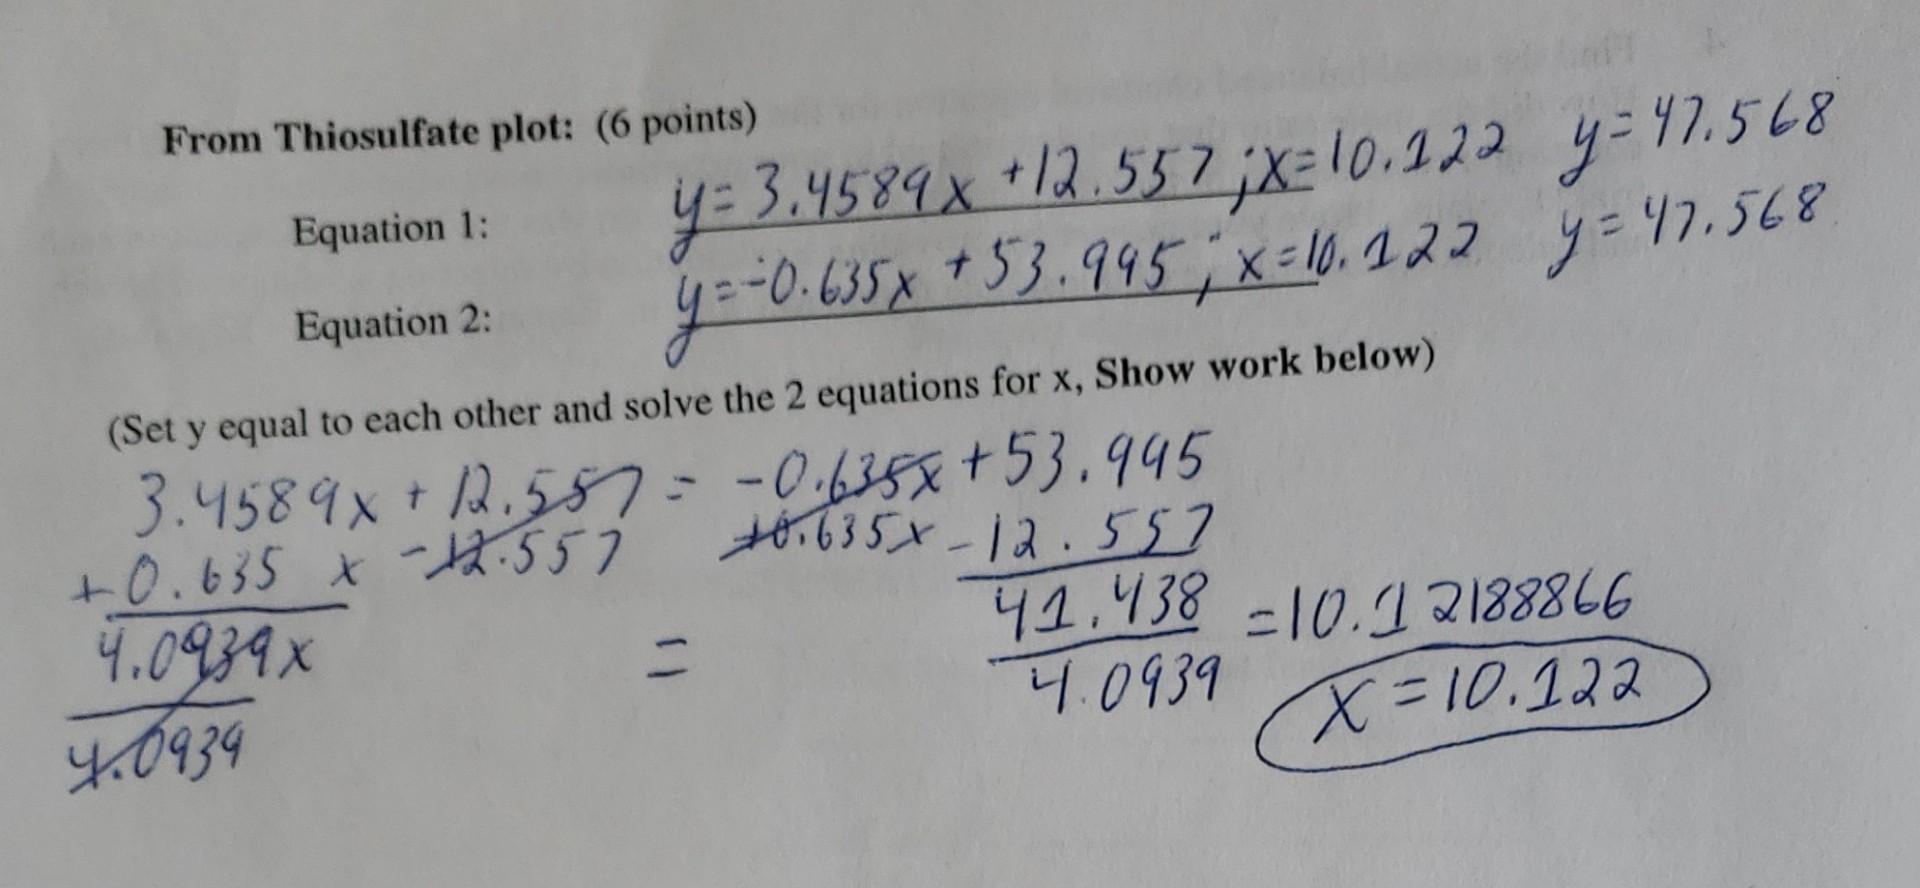 From Thiosulfate plot: (6 points)
Equation 1: y=3.4589x +12.557; x=10.122 y=47.568
Equation 2: y=-0.635x +53.995; x=10.122 y=47.568
(Set y equal to each other and solve the 2 equations for x, Show work below)
3.4589x + 12.557 = -0.635x +53.995
+0.635x -12.557 +0.635x -12.557
4.0939x = 41.438 =10.12188866
4.0939 4.0939 x=10.122